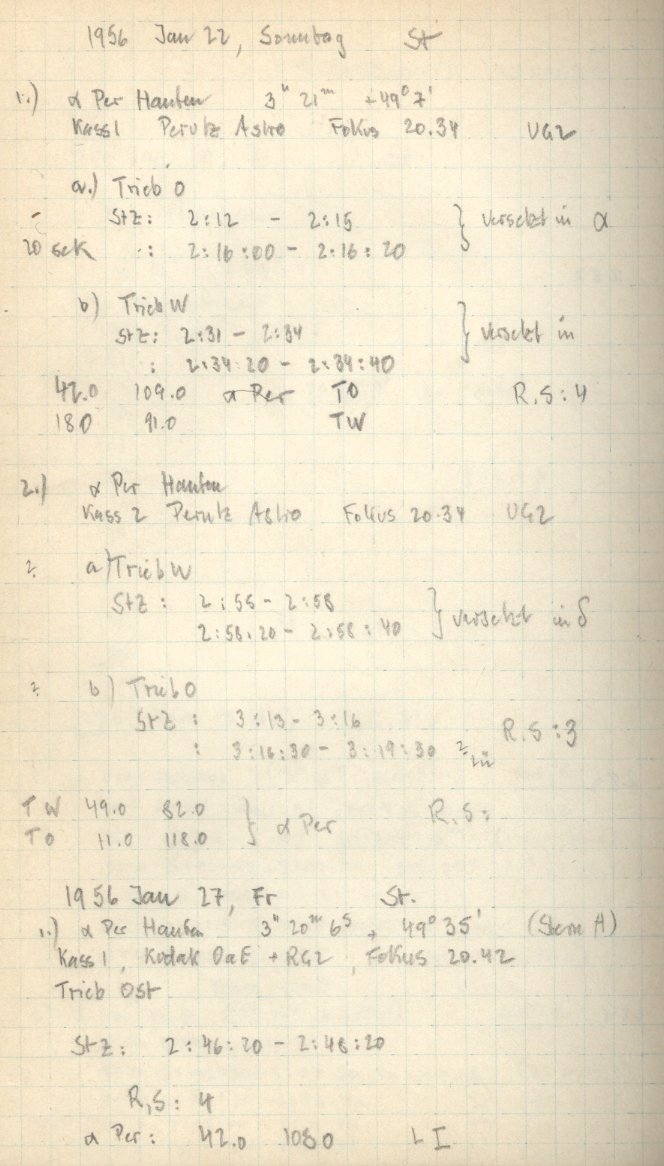 1956 Jan 22, Sonntag St
1.) α Per Haufen 3h 21m +49° 7'
Kass 1 Perutz Astro Fokus 20.34 UG2
a.) Trieb O
- StZ: 2:12 - 2:15 } versetzt in α
20 sek : 2:16:00 - 2:16:20
b) Trieb W
StZ: 2:31 - 2:34 } versetzt in
: 2:34:20 - 2:34:40
42.0 109.0 α Per TO R.S:4
180 91.0 TW
2.) α Per Haufen
Kass 2 Perutz Astro Fokus 20.34 UG2
? a) Trieb W
StZ: 2:55 - 2:58 } versetzt in δ
2:58:20 - 2:58:40
? b) Trieb O
StZ: 3:13 - 3:16 R.S:3
: 3:16:30 - 3:19:30 ?
TW 49.0 82.0 } α Per R.S:
TO 11.0 118.0
1956 Jan 27, Fr St.
1.) α Per Haufen 3h 20m 6s, 49° 35' (Stern A)
Kass 1, Kodak OaE + RG2, Fokus 20.42
Trieb Ost
StZ: 2:46:20 - 2:48:20
R,S: 4
α Per: 42.0 1080 L I